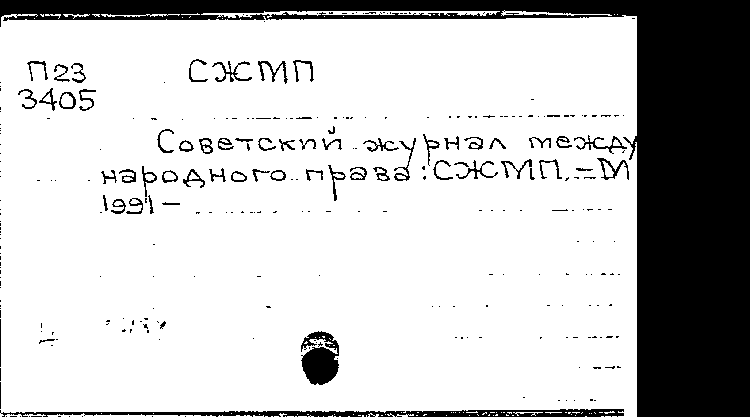 П23 СЖМП
3405
Советский журнал между
народного права: СЖМП. – М
1991 –